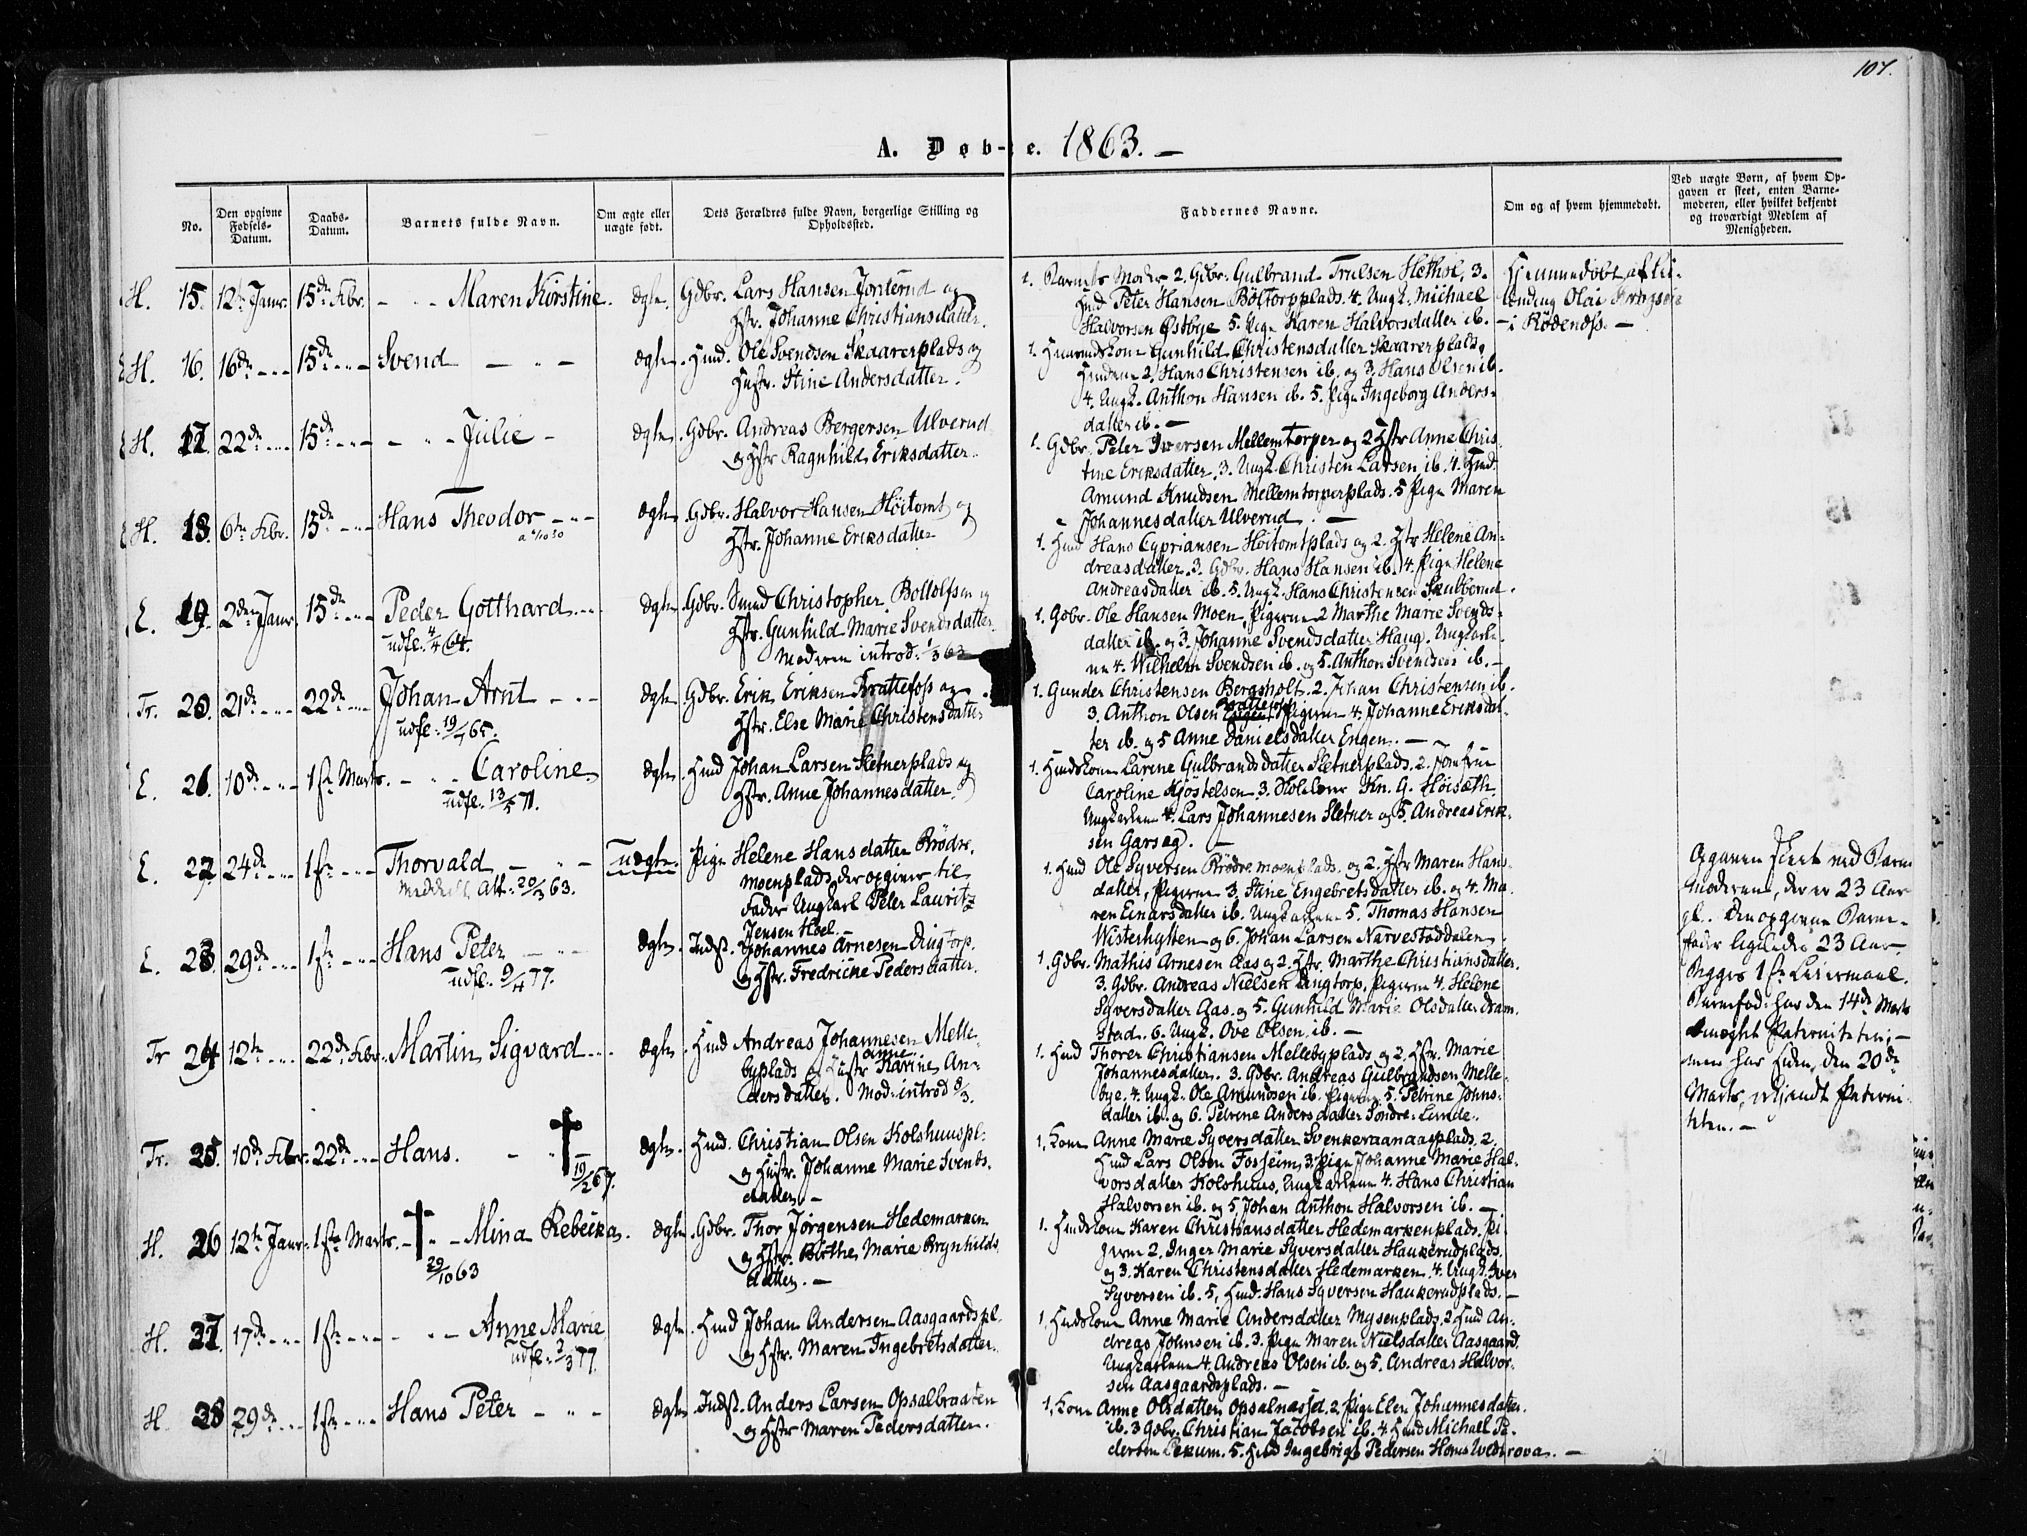 107.
A. Døbte. 1863. —
No.
Den opgivne Fødsels-Datum.
Daabs-Datum.
Barnets fulde Navn.
Om ægte eller uægte født.
Dets Forældres fulde Navn, borgerlige Stilling og Opholdssted.
Faddernes Navne.
Om og af hvem hjemmedøbt.
Ved uægte Børn, af hvem Opgaven er skeet, enten Barnemoderen, eller hvilket bekjendt og troværdigt Medlem af Menigheden.
H. 15. 12te Janr. 15de Febr. — " — Maren Kirstine. ægte. Gdbr. Lars Hansen og
Hstr. Johanne Christiansdatter.
1. Barnets Moder 2. Gdbr. Gulbrand Trulsen 3.
Hmd Peter Hansen Böltorpplads. 4. Ungk. Michael
Halvorsen Östbye 5. Pige Karen Halvorsdatter ib. —
Hjemmedöbt af
Olai
i Rödenæss. —
H. 16. 16de — 15de — Svend — " — ægte. Hmd. Ole Svendsen Skaarerplads og
Hustr. Stine Andersdatter.
1. Gunhild Christensdatter Skaarerplads,
2. Hans Christensen ib. og 3. Hans Olsen ib.
4. Ungk. Anthon Hansen ib. 5. Pige Ingeborg Anders-
datter ib. —
H. 17. 22de — 15de — — " — Julie — ægte. Gdbr. Andreas Bergersen Ulverud
og Hstr Ragnhild Eriksdatter.
1. Gdbr. Peter Iversen Mellemtorper og 2 Hstr Anne Chris-
tine Eriksdatter. 3. Ungk. Christen Larsen ib. 4. Hmd.
Amund Knudsen Mellemtorperplads. 5 Pige Maren
Johannesdatter Ulverud. —
H. 18. 6te Febr. 15de — Hans Theodor — ægte. Gdbr. Halvor Hansen Höitomt og
Hstr. Johanne Eriksdatter
1. Hmd Hans Cypriansen Höitomtplads og 2. Hstr Helene An-
dreasdatter. 3. Gdbr. Hans Hansen ib. 4. Pige Helene
Andreasdatter ib. 5. Ungk. Hans Christensen Skulberud.
E. 19. 2den Janr. 15de — Peder Gotthard — ægte. Gdbr. Smed Christopher Bottolfsen og
udfl. 4/4 64.
Hstr. Gunhild Marie Svendsdatter.
Moderen introd. 1/3 63
1. Gdbr. Ole Hansen Moen, Pigerne 2 Marthe Marie Svends-
datter ib. og 3. Johanne Svendsdatter Haug. Ungkarle-
ne 4. Wilhelm Svendsen ib. og 5. Anthon Svendsen ib. —
Tr. 20. 21de — 22de — Johan Arnt — ægte. Gdbr. Erik Eriksen Brattefoss og
udfl. 19/ 65.
Hstr. Else Marie Christensdatter
1. Gunder Christensen Bergsholt. 2. Johan Christensen ib.
3. Anthon Olsen Brattefoss, Pigerne 4. Johanne Eriksdat-
ter ib. og 5 Anne Danielsdatter Engen. —
E. 21. 10de — 1ste Marts. — " — Caroline. ægte. Hmd Johan Larsen Sletnerplads og
udfl. 13/5 71.
Hstr. Anne Johannesdatter.
1. Hmdskone Larine Gulbrandsdatter Sletnerplads. 2. Jomfrue
Caroline Kjöstelsen. 3. Kn. G. Höisæth.
Ungkarlene 4. Lars Johannesen Sletner og 5. Andreas Erik-
sen Garseg. —
E. 22. 24de — 1ste — Thorvald — " — uægte. Pige Helene Hansdatter Brödre-
Meddelt Att. 20/3 63.
moenplads der opgiver til
Fader Ungkarl Peter Lauritz
Jensen Hoel. —
1. Hmd Ole Syversen Brödremoenplads. og 2. Hstr Maren Hans-
datter, Pigerne 3. Stine Engebretsdatter ib. og 4. Ma-
ren Einarsdatter ib. Ungkarlene 5. Thomas Hansen
Wisterhytten og 6. Johan Larsen Narvestaddalen.
Opgaven skeet ved Barne-
moderen, der er 23 Aar
gl. Den opgivne Barne-
fader ligeledes 23 Aar.
Begges 1ste Leiermaal.
Barnefad. har den 14de Marts
benegtet Paterniteten; —
men har siden, den 20de
Marts, vedkjendt Paterni-
teten. —
E. 23. 29de — 1ste — Hans Peter — ægte. Indst. Johannes Arnesen Dingtorp
udfl. 9/4 77.
og Hstr. Fredricke Pedersdatter.
1. Gdbr. Mathis Arnesen Aas og 2. Hstr. Marthe Christiansdatter.
3. Gdbr. Andreas Nielsen Dingtorp, Pigerne 4. Helene
Syversdatter Aas og 5. Gunhild Marie Olsdatter Ram-
stad. 6. Ungk. Ove Olsen ib. —
Tr 24. 12te — 22de Febr. Martin Sigvard — ægte. Hmd Andreas Johannesen Melle-
byplads og Hustr Anne Karine An-
dersdatter. Mod. introd 8/3.
1. Hmd Thorer Christiansen Mellebyplads og 2. Hstr. Marie
Johannesdatter. 3. Gdbr. Andreas Gulbrandsen Melle-
bye. 4. Ungk. Ole Amundsen ib. Pigerne 5. Petrine Johns-
datter ib. og 6. Petrine Andersdatter Söndre-Lunde.
Tr. 25. 10de Febr. 22de — Hans. — " — † 19/2 67. ægte. Hmd. Christian Olsen Kolshuuspl.
og Hustr. Johanne Marie Svends-
datter. —
1. Kone Anne Marie Syversdatter Svenkeraanaasplads. 2.
Hmd Lars Olsen Fosheim, 3. Pige Johanne Marie Hal-
vorsdatter Kolshuus, Ungkarlene 4. Hans Christian
Halvorsen ib. og 5 Johan Anthon Halvorsen ib. —
H. 26 12te Janr. 1ste Marts. — † " — Mina Rebekka. ægte. Gdbr. Thor Jörgensen Hedemarken
29/10 63
og Hstr. Birthe Marie Brynhilds-
datter. —
1. Hmdskone Karen Christiansdatter Hedemarkenplads. Pi-
gerne 2. Inger Marie Syversdatter Haukerudplads.
og 3. Karen Christensdatter Hedemarken. 4. Ungk. Iver
Syversen ib. 5, Hmd. Hans Syversen Haukerudplads. —
H. 27. 17de — 1ste — — " — Anne Marie ægte. Hmd Johan Andersen Aasgaardspl.
udfl. 2/3 77.
og Hstr. Maren Ingebretsdatter.
1. Hmdskone Anne Marie Andersdatter Mysenplads, 2 Hmd An-
dreas Johnsen ib. 3. Pige Maren Nielsdatter Aasgaard.
Ungkarlene 4. Andreas Olsen ib. og 5. Andreas Halvor-
sen Aasgaardsplads. —
H 28 29de — 1ste — Hans Peter — " — ægte. Indst. Anders Larsen Opsalbraaten
og Hstr Maren Pedersdatter.
1. Kone Anne Olsdatter Opsalnæssed. 2 Pige Elen Johannesdatter
ib. 3 Gdbr. Christian Jacobsen ib. 4. Hmd Michael Pe-
dersen Lekum. 5. Hmd Ingebrigt Pedersen. —